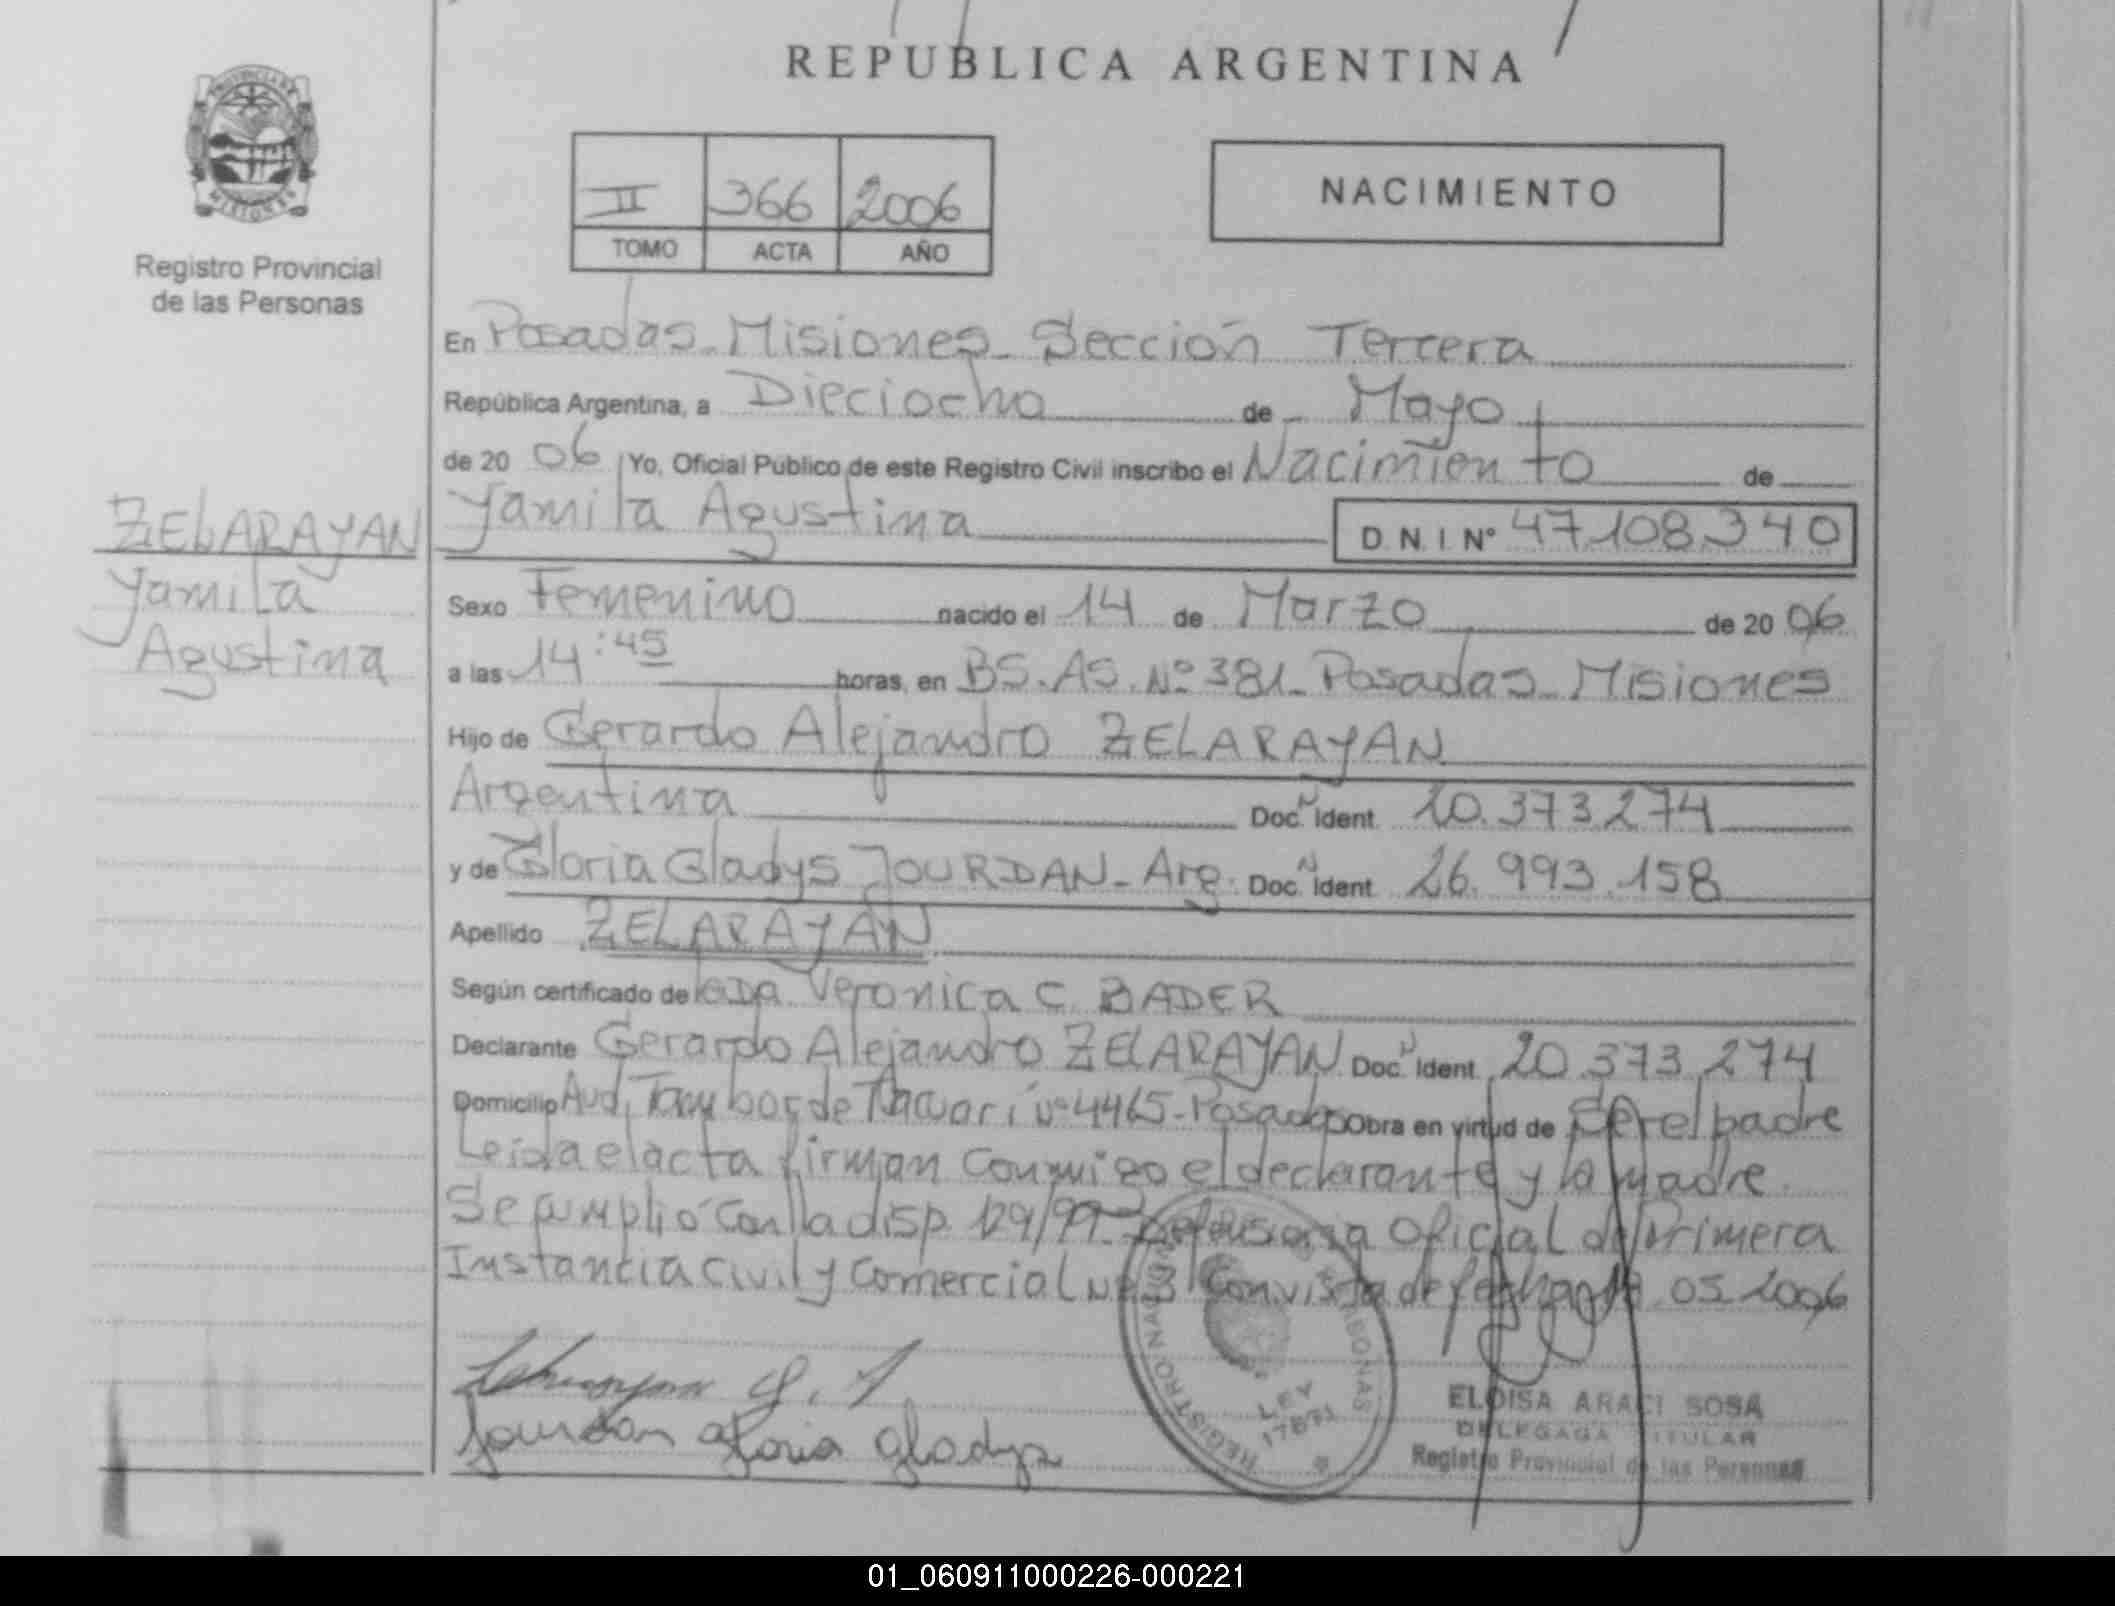 REPUBLICA ARGENTINA
PROVINCIA DE
MISIONES
Registro Provincial
de las Personas
II 366 2006
TOMO ACTA AÑO
NACIMIENTO
En Posadas - Misiones - Sección Tercera
República Argentina, a Dieciocho de Mayo
de 20 06 Yo, Oficial Público de este Registro Civil inscribo el Nacimiento de
ZELARAYAN
Yamila
Agustina
Yamila Agustina D.N.I. Nº 47.108.340
Sexo Femenino nacido el 14 de Marzo de 20 06
a las 14:45 horas, en BS.AS. Nº 381 - Posadas - Misiones
Hijo de Gerardo Alejandro ZELARAYAN
Argentina Doc. Ident. 20.373.274
y de Gloria Gladys JOURDAN - Arg. Doc. Ident. 26.993.158
Apellido ZELARAYAN
Según certificado de Veronica C. BADER
Declarante Gerardo Alejandro ZELARAYAN Doc. Ident. 20.373.274
Domicilio Avd. Tambor de Tacuari nº 4465 - Posadas Obra en virtud de Ser el padre
Leida el acta firman conmigo el declarante y la madre.
Se cumplió con la disp. 129/99 - Defensoria Oficial de Primera
Instancia Civil y Comercial Nº 3 Con vista de fecha 05 2006
Jourdan Gloria Gladys
LEY
17671
ELOISA ARACI SOSA
DELEGADA TITULAR
Registro Provincial de las Personas
01_060911000226-000221